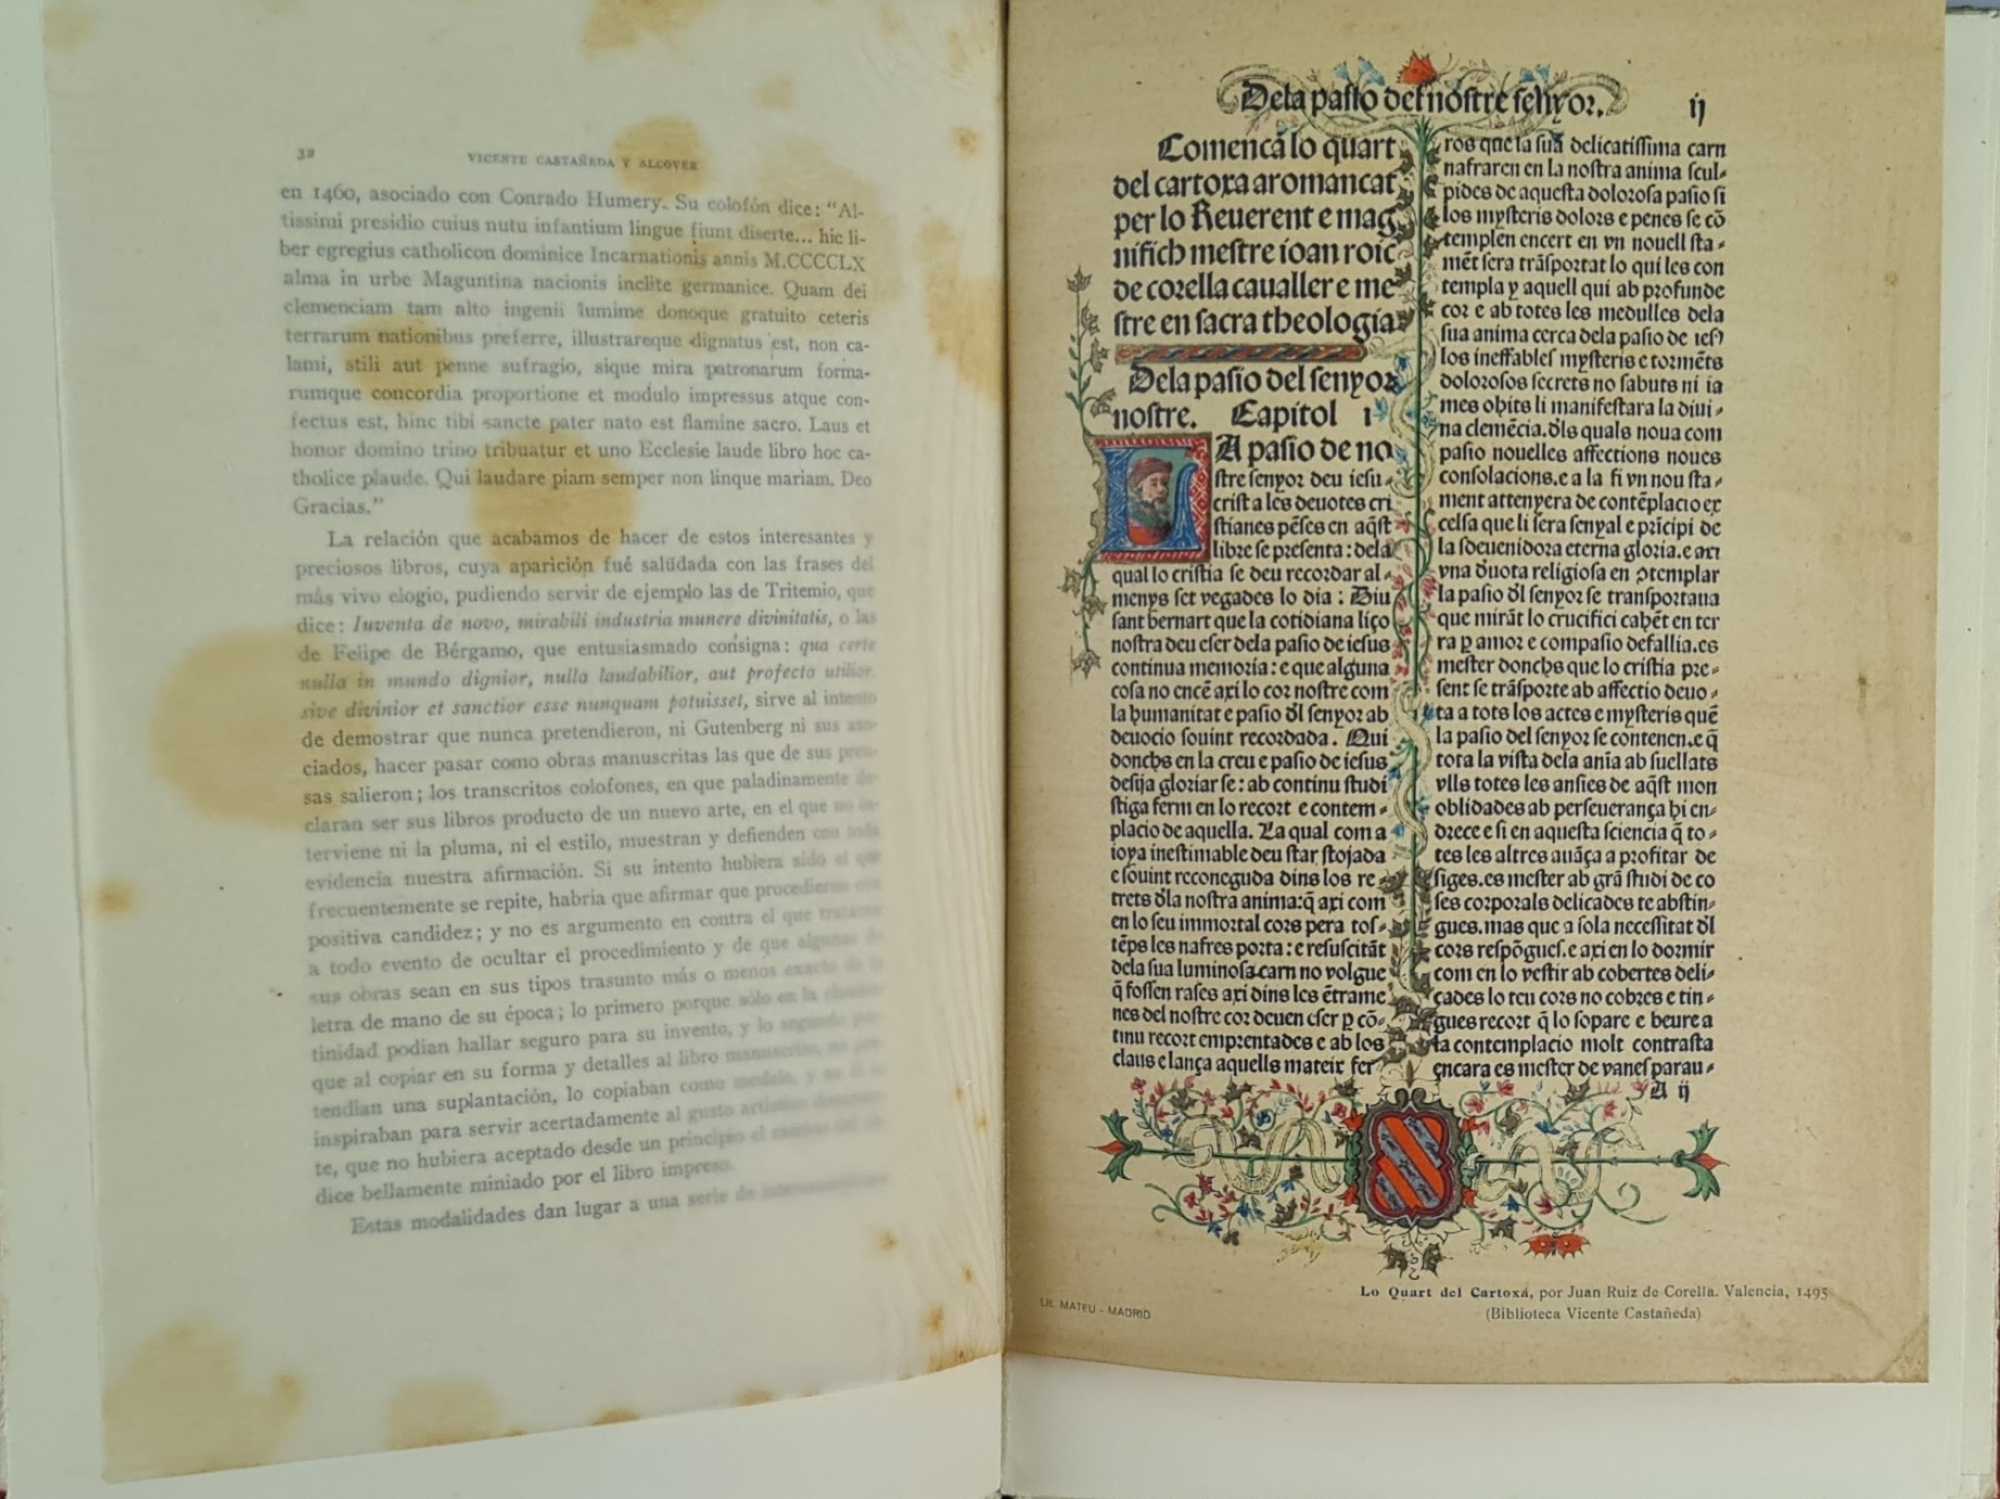 32
VICENTE CASTAÑEDA Y ALCOVER
en 1460, asociado con Conrado Humery. Su colofón dice: "Al-
tissimi presidio cuius nutu infantium lingue fiunt diserte... hic li-
ber egregius catholicon dominice Incarnationis annis M.CCCCLX
alma in urbe Maguntina nacionis inclite germanice. Quam dei
clemenciam tam alto ingenii lumime donoque gratuito ceteris
terrarum nationibus preferre, illustrareque dignatus est, non ca-
lami, stili aut penne sufragio, sique mira patronarum forma-
rumque concordia proportione et modulo impressus atque con-
fectus est, hinc tibi sancte pater nato est flamine sacro. Laus et
honor domino trino tribuatur et uno Ecclesie laude libro hoc ca-
tholice plaude. Qui laudare piam semper non linque mariam. Deo
Gracias."
La relación que acabamos de hacer de estos interesantes y
preciosos libros, cuya aparición fué salüdada con las frases del
más vivo elogio, pudiendo servir de ejemplo las de Tritemio, que
dice: Iuventa de novo, mirabili industria munere divinitatis, o las
de Felipe de Bérgamo, que entusiasmado consigna: qua certe
nulla in mundo dignior, nulla laudabilior, aut profecto utilior,
sive divinior et sanctior esse nunquam potuisset, sirve al intento
de demostrar que nunca pretendieron, ni Gutenberg ni sus aso-
ciados, hacer pasar como obras manuscritas las que de sus pren-
sas salieron; los transcritos colofones, en que paladinamente de-
claran ser sus libros producto de un nuevo arte, en el que no in-
terviene ni la pluma, ni el estilo, muestran y defienden con toda
evidencia nuestra afirmación. Si su intento hubiera sido el que
frecuentemente se repite, habría que afirmar que procedieron con
positiva candidez; y no es argumento en contra el que trataran
a todo evento de ocultar el procedimiento y de que algunas de
sus obras sean en sus tipos trasunto más o menos exacto de la
letra de mano de su época; lo primero porque sólo en la clandes-
tinidad podían hallar seguro para su invento, y lo segundo por-
que al copiar en su forma y detalles al libro manuscrito, no pre-
tendían una suplantación, lo copiaban como modelo, y en él se
inspiraban para servir acertadamente al gusto artístico
te, que no hubiera aceptado desde un principio el cambio del có-
dice bellamente miniado por el libro impreso.
Estas modalidades dan lugar a una serie de
Dela pasio del nostre senyor. ij
Comencã lo quart
del cartoxa aromancat
per lo Reuerent e mag
nifich mestre ioan roic
de corella caualler e me
stre en sacra theologia
Dela pasio del senyor
nostre. Capitol i
A pasio de no
stre senyor deu iesu
crist a les deuotes cri
stianes pẽses en aq̃st
libre se presenta: dela
qual lo cristia se deu recordar al-
menys set vegades lo dia: Diu
sant bernart que la cotidiana liço
nostra deu eser dela pasio de iesus
continua memoria: e que alguna
cosa no encẽ axi lo cor nostre com
la humanitat e pasio dl senyor ab
deuocio souint recordada. Qui
donchs en la creu e pasio de iesus
desija gloriar se: ab continu studi
stiga ferm en lo recort e contem-
placio de aquella. La qual com a
ioya inestimable deu star stojada
e souint reconeguda dins los re
trets dla nostra anima: q̃ axi com
en lo seu immortal cors pera tos-
tẽps les nafres porta: e resuscitãt
dela sua luminosa carn no volgue
q̃ fossen rases axi dins les ẽtrame
nes del nostre cor deuen eser p cõ-
tinu recort emprentades e ab los
claus e lança aquells mateix fer
ros que la sua delicatissima carn
nafraren en la nostra anima scul-
pides de aquesta dolorosa pasio si
los mysteris dolors e penes se cõ
templen encert en vn nouell sta-
mẽt sera trãsportat lo qui les con
templa y aquell qui ab profunde
cor e ab totes les medulles dela
sua anima cerca dela pasio de ies⁹
los ineffables mysteris e tormẽts
dolorosos secrets no sabuts ni ia
mes ohits li manifestara la diui-
na clemẽcia. dls quals noua com
pasio nouelles affections noues
consolacions. e a la fi vn nou sta-
ment attenyera de contẽplacio ex
celsa que li sera senyal e prĩcipi de
la sdeuenidora eterna gloria. e axi
vna duota religiosa en ↄtemplar
la pasio dl senyor se transportaua
que mirãt lo crucifici cahẽt en ter
ra p amor e compasio defallia. es
mester donchs que lo cristia pre-
sent se trãsporte ab affectio deuo-
ta a tots los actes e mysteris quẽ
la pasio del senyor se contenen. e q̃
tota la vista dela ania ab suellats
vlls totes les ansies de aq̃st mon
oblidades ab perseuerança hi en-
drece e si en aquesta sciencia q̃ to-
tes les altres auãça a profitar de
siges. es mester ab grã studi de co
ses corporals delicades te abstin-
gues. mas que a sola necessitat dl
cors respõgues. e axi en lo dormir
com en lo vestir ab cobertes deli-
cades lo teu cors no cobres e tin-
gues recort q̃ lo sopare e beure a
la contemplacio molt contrasta
encara es mester de vanes parau-
A ij
LIL. MATEU - MADRID
Lo Quart del Cartoxá, por Juan Ruiz de Corella. Valencia, 1495
(Biblioteca Vicente Castañeda)